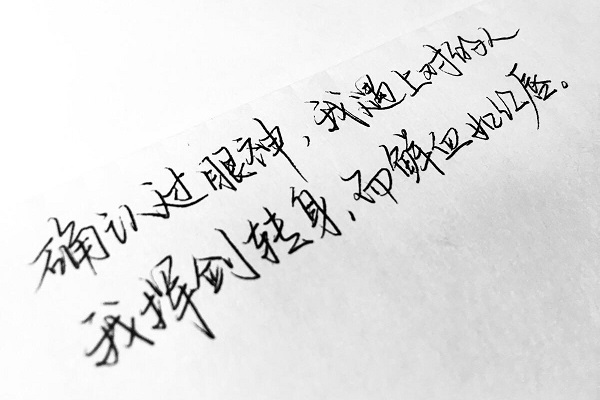 确认过眼神,我遇上对的人
我挥剑转身,而鲜血如红唇。